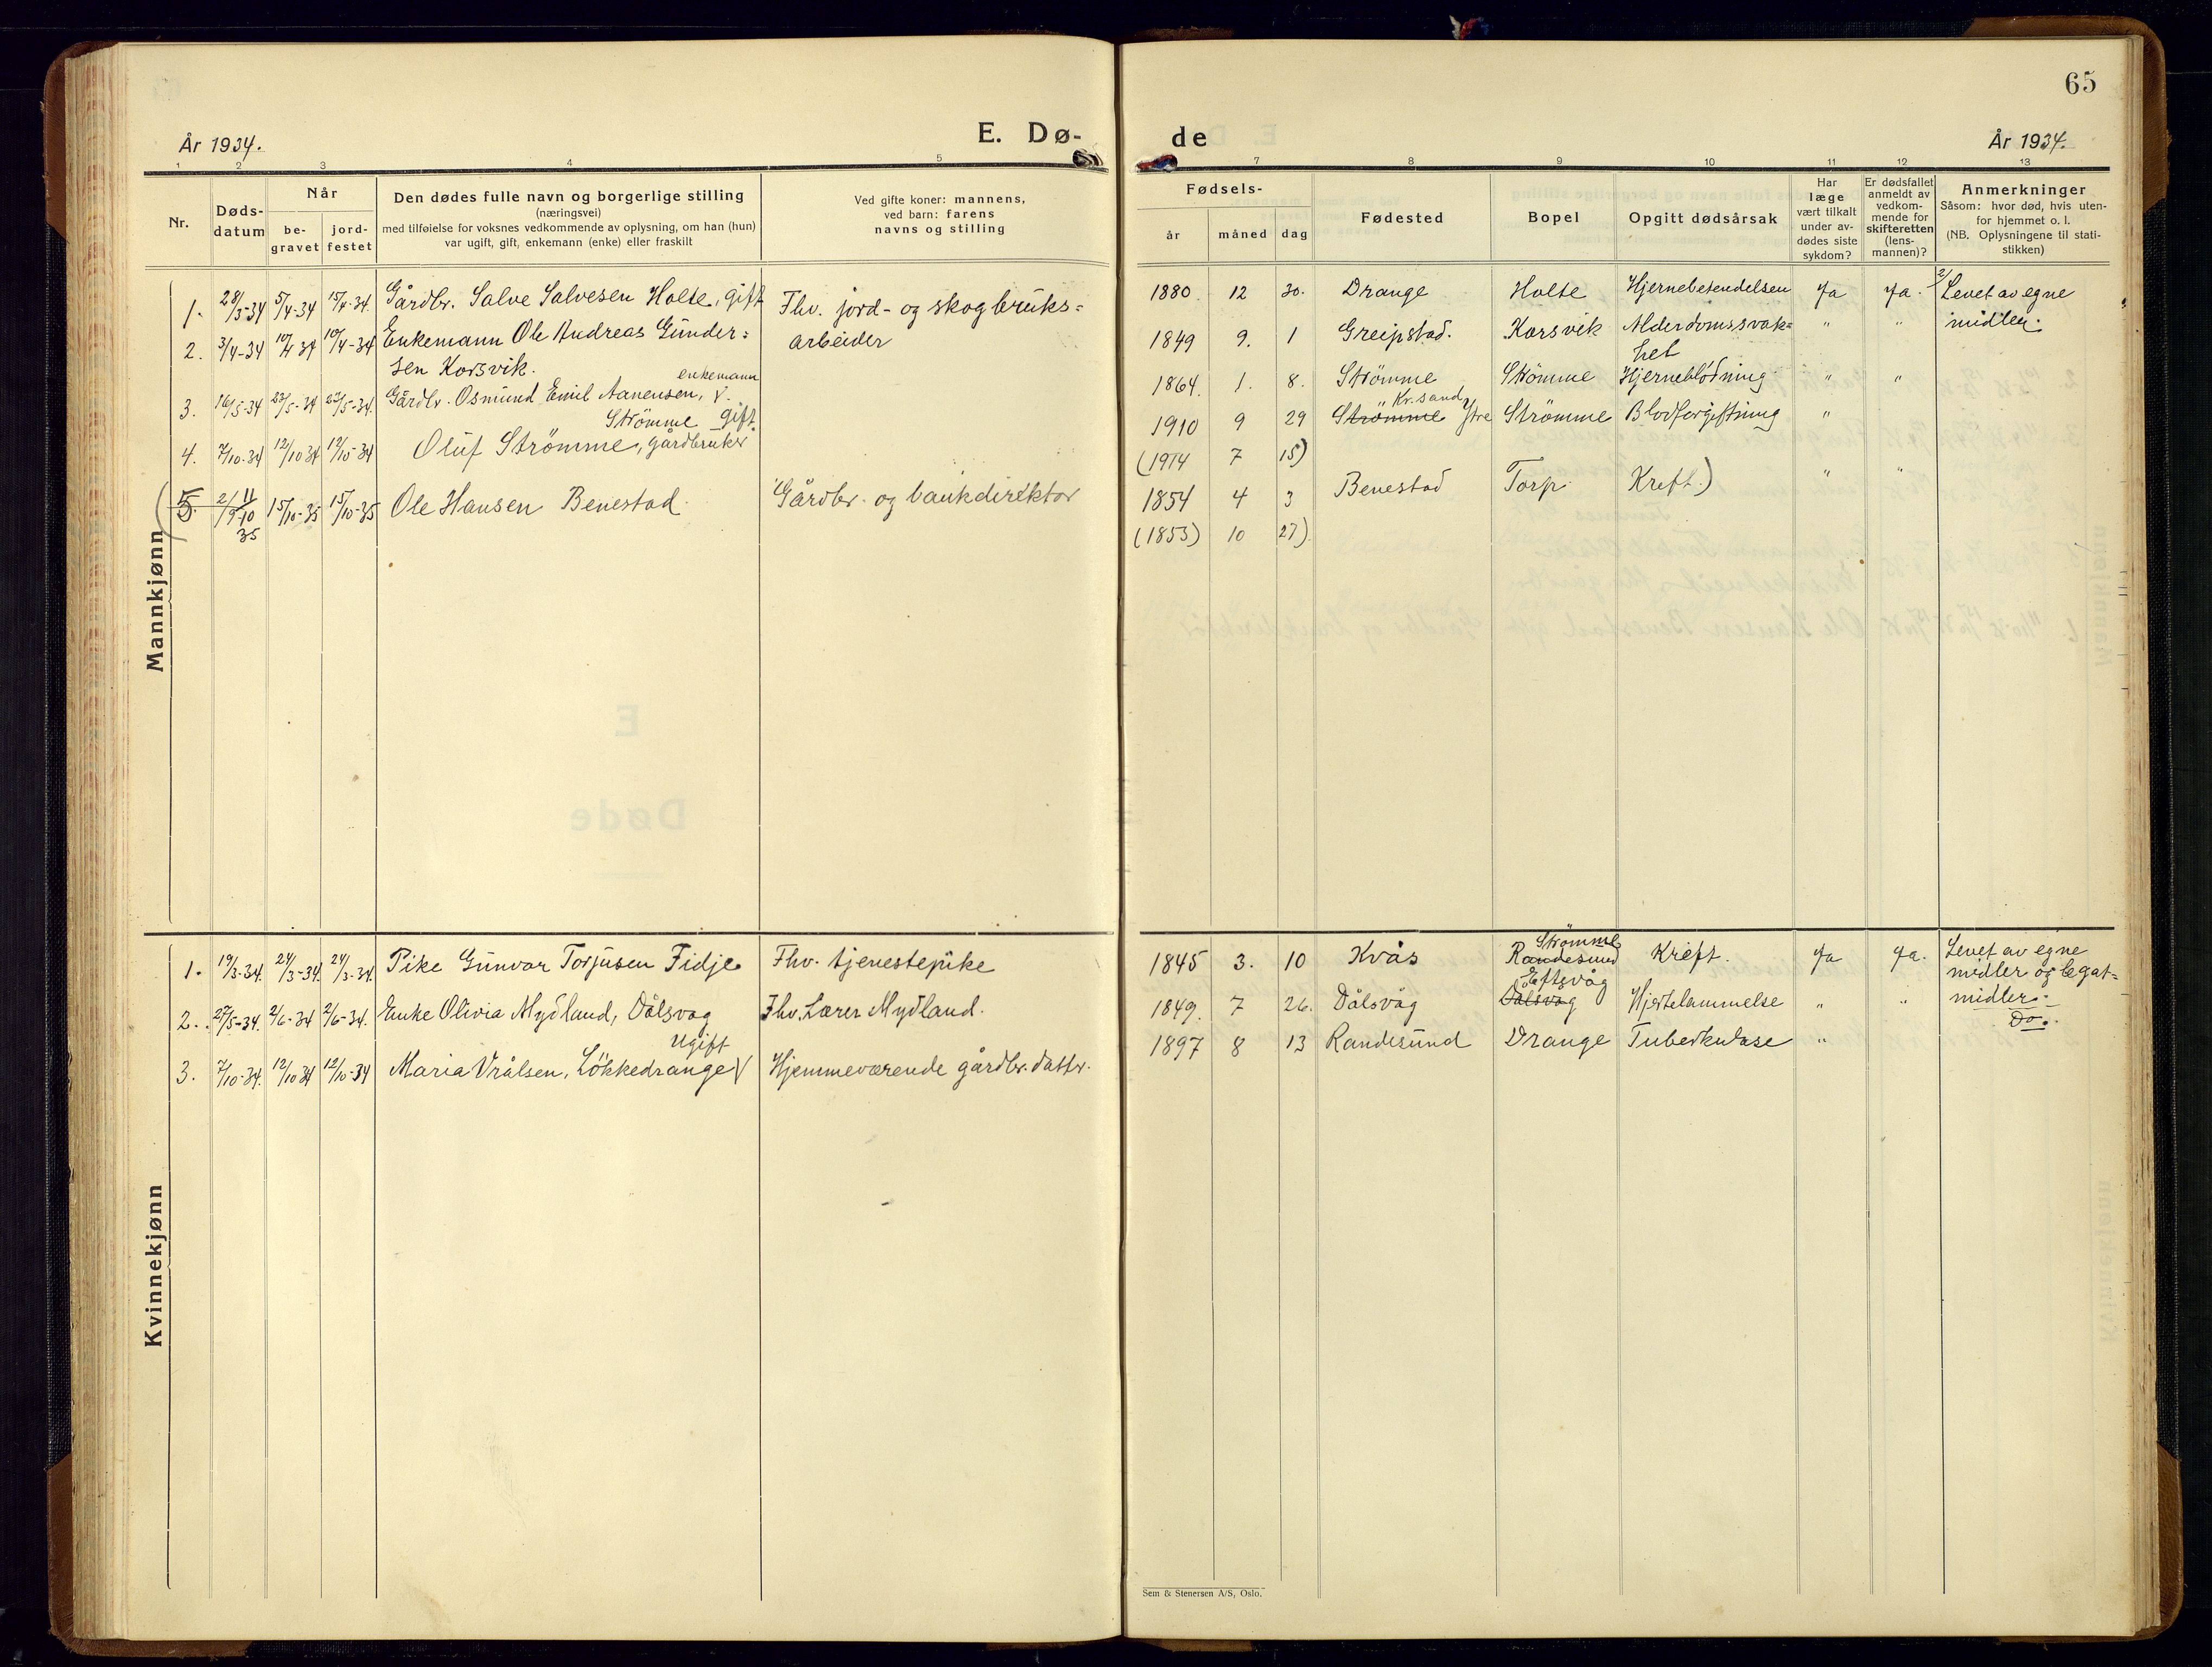 65
År 1934.
E. Dø-
de
År 1934.
1 2 3 4 5 7 8 9 10 11 12 13
Nr.
Døds-
datum
Når
be-
gravet
jord-
festet
Den dødes fulle navn og borgerlige stilling
(næringsvei)
med tilføielse for voksnes vedkommende av oplysning, om han (hun)
var ugift, gift, enkemann (enke) eller fraskilt
Ved gifte koner: mannens,
ved barn: farens
navns og stilling
Fødsels-
år måned dag
Fødested
Bopel
Opgitt dødsårsak
Har
læge
vært tilkalt
under av-
dødes siste
sykdom?
Er dødsfallet
anmeldt av
vedkom-
mende for
skifteretten
(lens-
mannen)?
Anmerkninger
Såsom: hvor død, hvis uten-
for hjemmet o. l.
(NB. Oplysningene til stati-
stikken)
Mannkjønn
1. 28/3-34 5/4-34 15/4-34. Gårdbr. Salve Salvesen Holte, gift
Fhv. jord- og skogbruks=
1880 12 30. Drange Holte Hjernebetendelsen Ja Ja. 2/ Levet av egne
2. 3/4-34 10/4 34 10/4-34 Enkemann Ole Andreas Gunder=
arbeider
1849 9. 1 Greipstad. Korsvik Alderdomssvak= " " midler.
sen Korsvik.
het
enkemann
3. 16/5-34 23/5-34 23/5-34. Gårdbr. Osmund Emil Aanensen, V.
Strömme gift.
1864 1. 8. Strömme Strömme Hjerneblödning " "
4. 7/10-34 12/10 34 12/10-34 Oluf Strömme, gårdbruker
Kr.sand
1910 9 29 Strömme Strömme Blodforgiftning "
(1914 7 15)
(5 2/11 15/10-35 15/10-35 Ole Hansen Benestad. Gårdbr. og bankdirektör
35
1854 4 3 Benestad Torp. Kreft.) " "
(1853) 10 27)
Kvinnekjønn
1. 19/3-34. 24/3-34. 24/3-34. Pike Gunvor Torjusen Fidje Fhv. tjenestepike
Strömme
1845 3. 10 Kvås Randesund Kreft. Ja Ja. Levet av egne
midler og legat=
2. 27/5-34. 2/6-34 2/6-34. Enke Olivia Mydland, Dålsvåg Fhv. Lærer Mydland.
Eftevåg
1849. 7 26. Dålsvåg Dålsvåg Hjertelammelse " " midler.
Do.
Ugift
3. 7/10-34. 12/10 34 12/10-34 Maria Vrålsen, Lökkedrange V Hjemmeværende gårdbr. dattr.
1897 8 13 Randesund Drange Tuberkulose "
Sem & Stenersen A/S, Oslo.